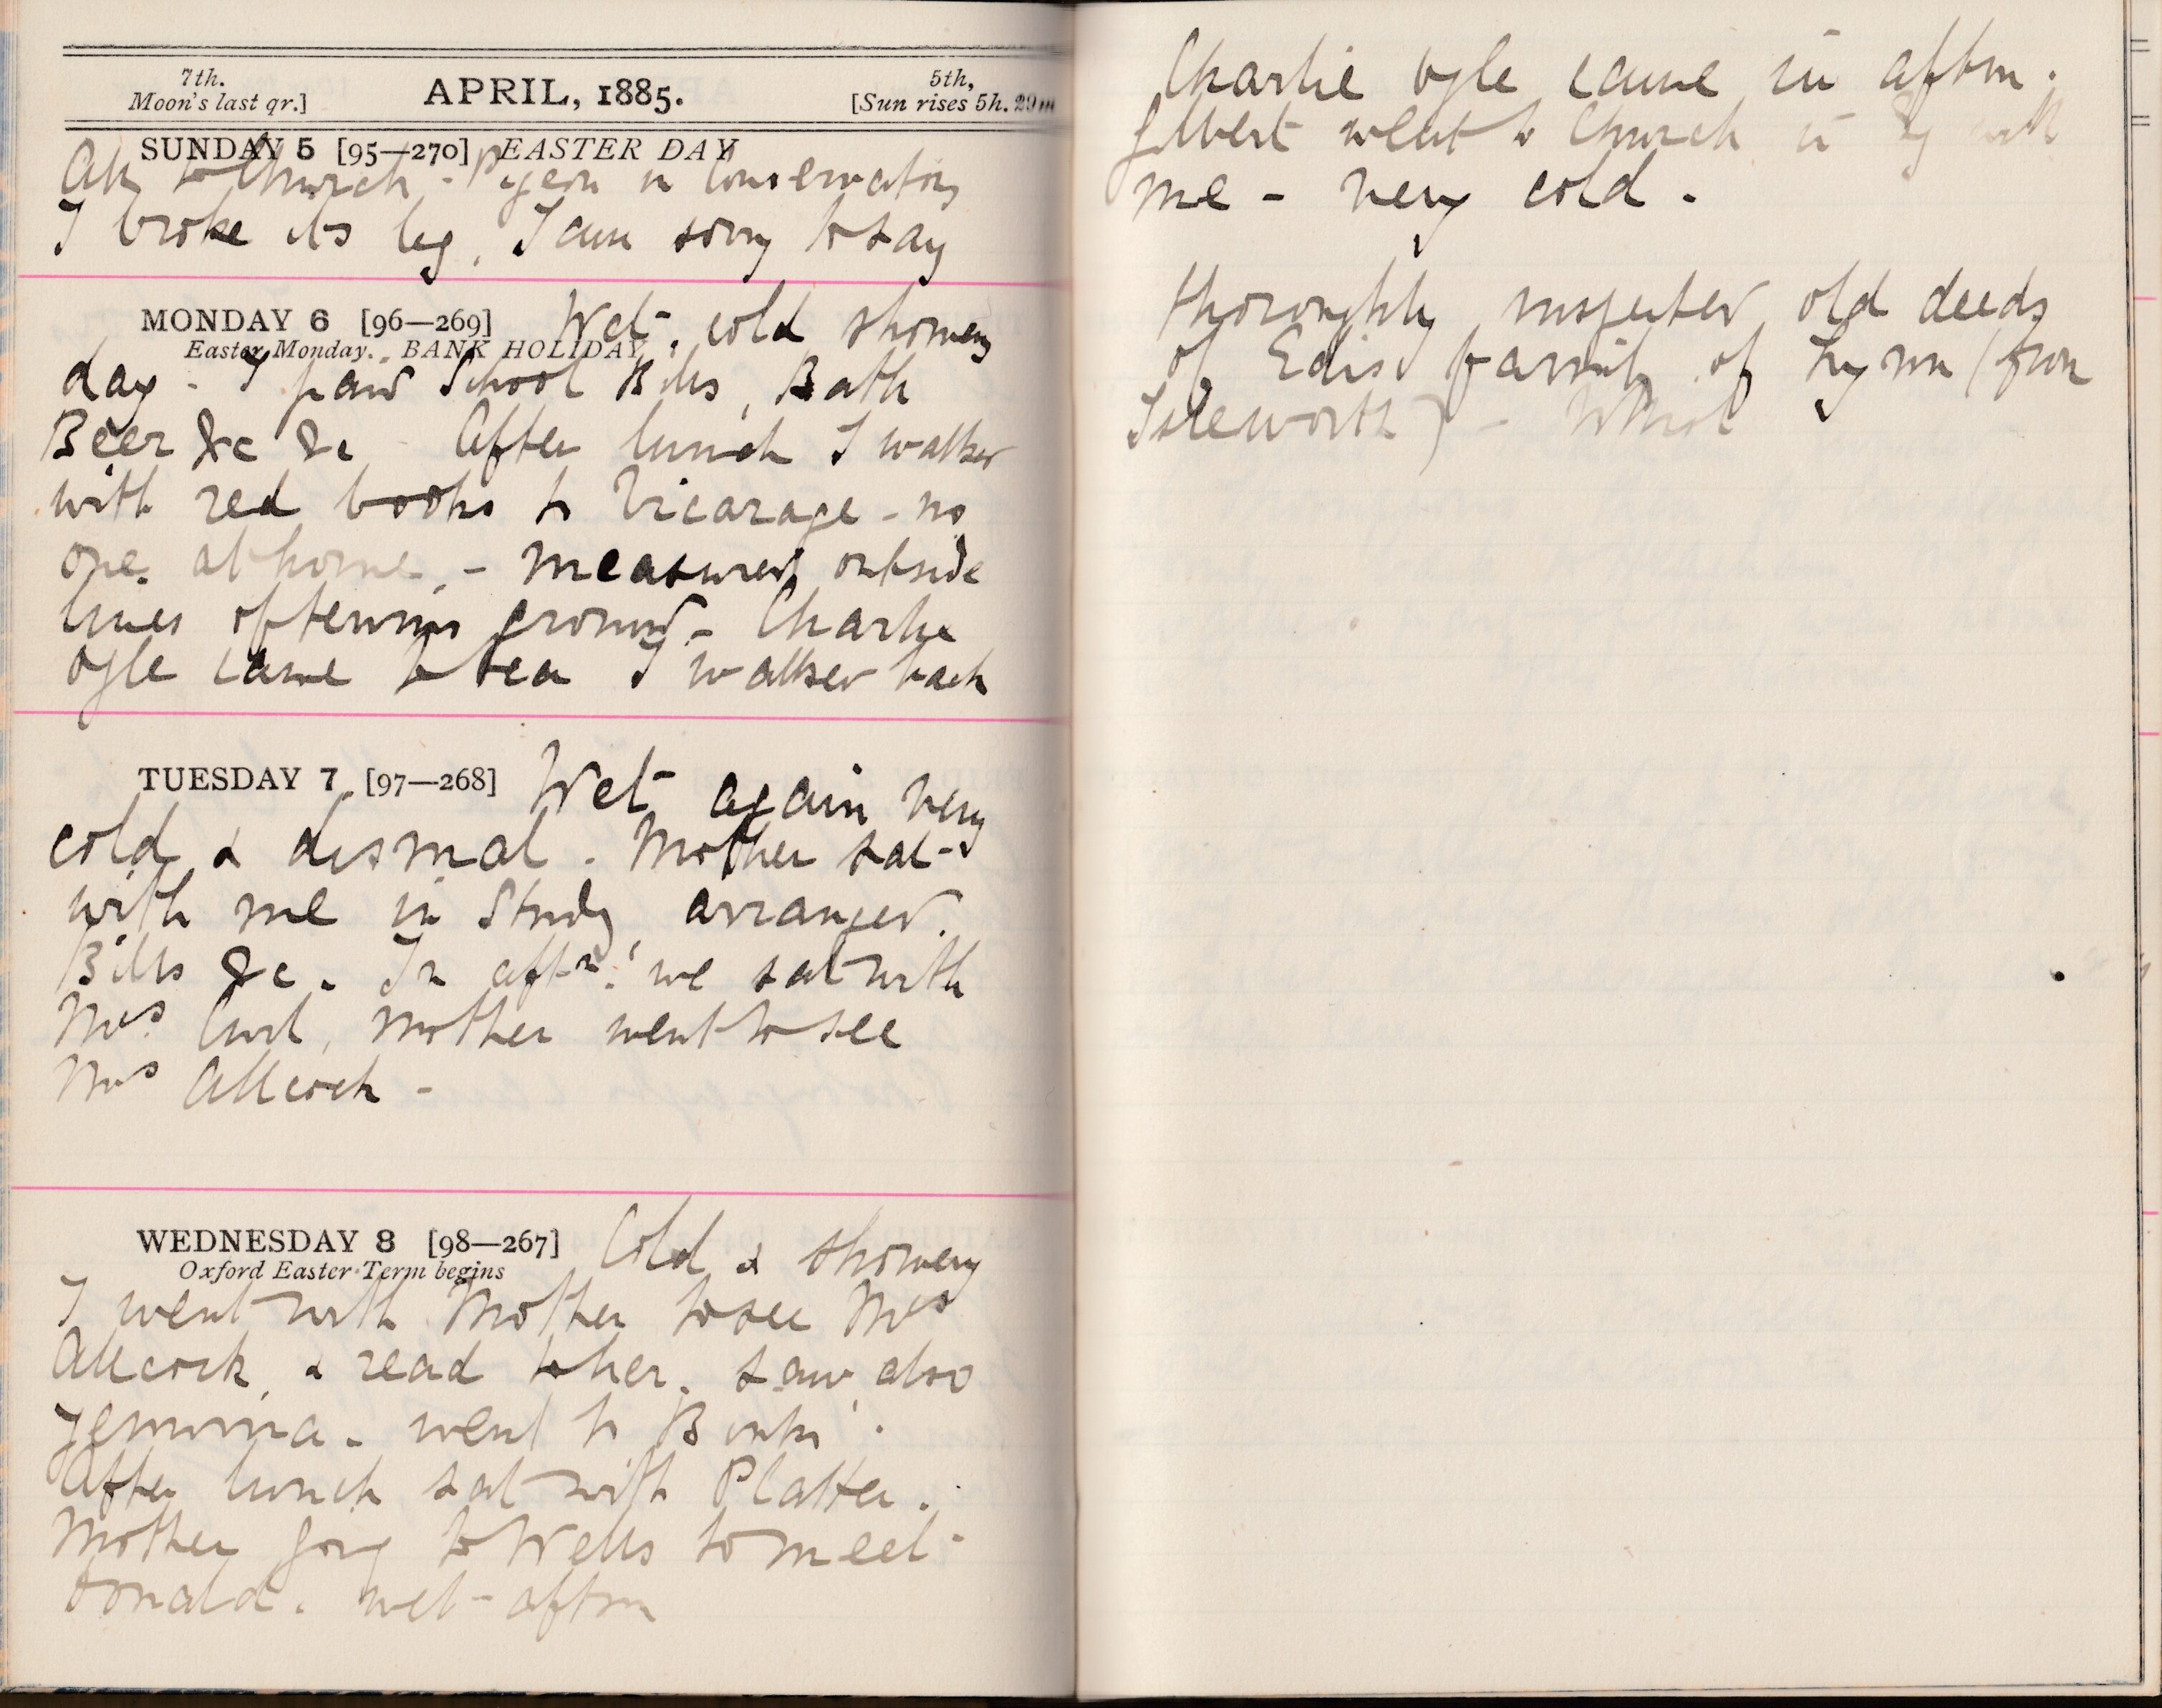 7th.
Moon's last qr.]
APRIL, 1885.
5th,
[Sun rises 5h. 29m
SUNDAY 5 [95—270] EASTER DAY
All to Church - Pigeon in Conservatory
I broke its leg, I am sorry to say
MONDAY 6 [96—269] Wet, cold showery
Easter Monday. BANK HOLIDAY
day - I paid School Bills, Bath
Beer &c &c - After lunch I walked
with red books to Vicarage - no
one at home, - measured outside
lines of tennis ground - Charlie
Ogle came to tea I walked back
TUESDAY 7 [97—268] Wet again very
cold & dismal. Mother sat
with me in Study arranged
Bills &c. In aftn. we sat with
Mrs Curl, Mother went to see
Mrs Allcock -
WEDNESDAY 8 [98—267] Cold & showery
Oxford Easter Term begins
I went with Mother to see Mrs
Allcock, & read to her. saw also
Jemima. went to
After lunch sat with Platten.
Mother going to Wells to meet
Donald. wet aftrn
Charlie Ogle came in aftrn.
Gilbert went to Church in with
me - very cold.
thoroughly inspected old deeds
of Edis family of Lynn (from
Isleworth) - Whist